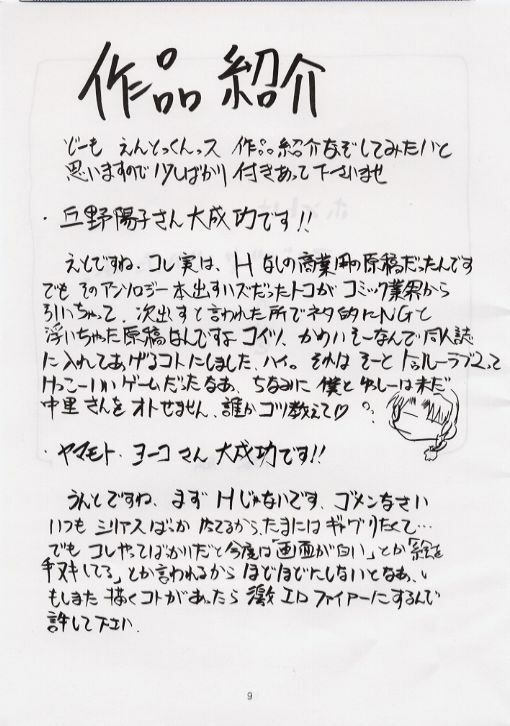 作品紹介
どーも えんとっくんっス 作品紹介なぞしてみたいと
思いますので少しばかり 付きあって下さいませ
・丘野陽子さん大成功です!!
えとですね、コレ実は、Hなしの商業用の原稿だったんです
でも そのアンソロジー本出すハズだったトコが コミック業界から
引いちゃって、次出すと言われた所でネタ的にNGと
浮いちゃった原稿なんですよ コイツ、かわいそーなんで同人誌
に入れてあげるコトにしました、ハイ。それは そーと トゥルーラブ2って
けっこーいいゲームだったなあ、ちなみに 僕と ゆしーは未だ
中里さんを オトせません、誰か コツ教えて♡
・ヤマモト・ヨーコさん 大成功です!!
うんとですね、まず Hじゃないです、ゴメンなさい
いつも シリアスばっか だてるから、たまには ギャグりたくて…
でも コレやってばっかりだと今度は「画面が白い」とか「絵を
手ヌキしてる」とか言われるから ほどほどにしないとなあ、
もしまた 描くコトがあったら 激エロファイアーにするんで
許して下さい.
9